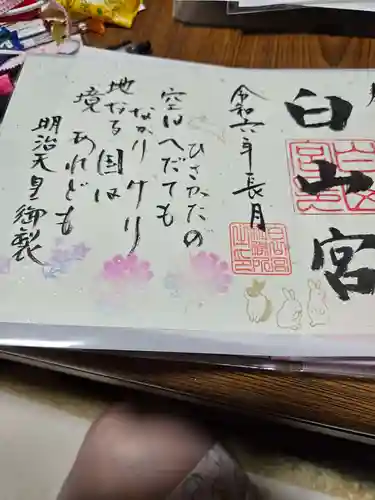 白山宮
令和六年長月
ひさかたの
空はへだても
なかりけり
地なる国は
境あれども
明治天皇御製